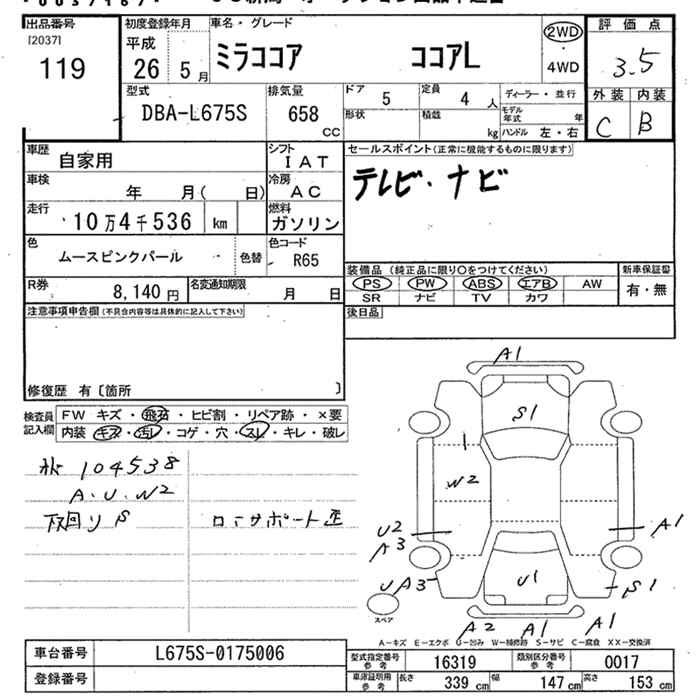 出品番号
[2037]
119
初度登録年月
平成
26 5 月
車名・グレード
ミラココア ココアL
2WD
・
4WD
評価点
3.5
外装 内装
C B
型式
DBA-L675S
排気量
658
CC
ドア
5
定員
4 人
形状
積載
kg
ディーラー・並行
モデル年式 年
ハンドル 左・右
車歴
自家用
シフト
IAT
車検
年 月( 日)
冷房
AC
走行
10万4千536 km
燃料
ガソリン
色
ムースピンクパール
色替
色コード
R65
R券
8,140 円
名変通知期限
月 日
セールスポイント(正常に機能するものに限ります)
テレビ・ナビ
装備品 (純正品に限り○をつけてください)
PS PW ABS エアB AW
SR ナビ TV カワ
新車保証書
有・無
後日品
注意事項申告欄(不具合内容等は具体的に記入して下さい)
修復歴 有〔箇所 〕
検査員
記入欄
FW キズ・飛石・ヒビ割・リペア跡・×要
内装 キズ・汚レ・コゲ・穴・スレ・キレ・破レ
104538
A・U・W2
下回り S
コアサポート歪
A1
S1
W2
U2
A3
A1
UA3
U1
S1
A2 A1 A1
スペア
A-キズ E-エクボ U-凹み W-補修跡 S-サビ C-腐食 XX-交換済
車台番号
L675S-0175006
登録番号
型式指定番号
参考
16319
類別区分番号
参考
0017
車庫証明用
参考
長さ 339 cm 幅 147 cm 高さ 153 cm